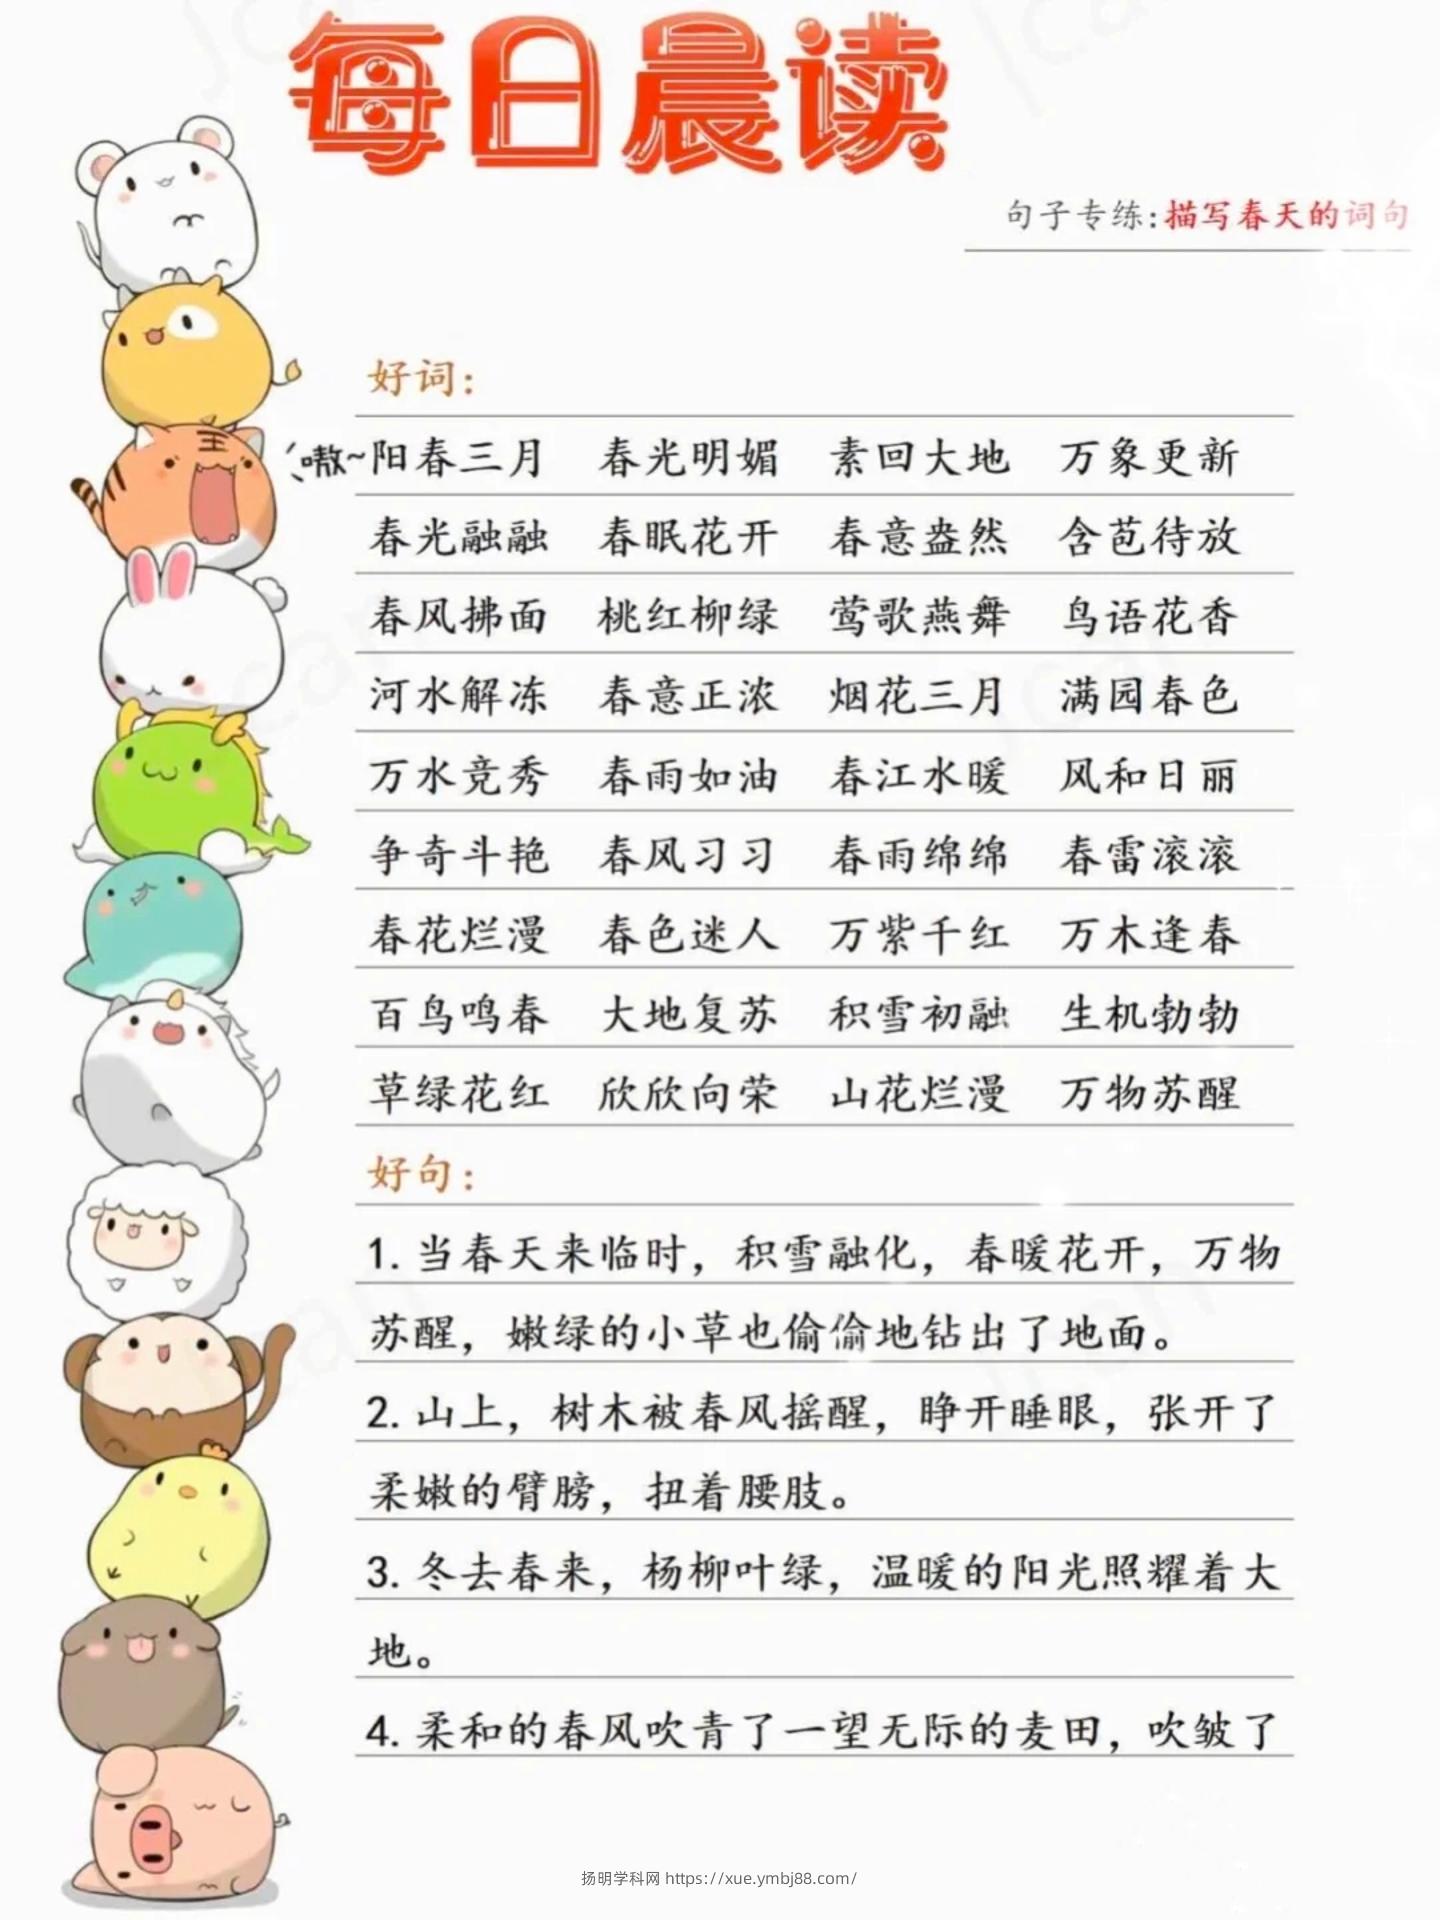 每日晨读
句子专练:描写春天的词句
好词:
嗷~
阳春三月 春光明媚 素回大地 万象更新
春光融融 春眠花开 春意盎然 含苞待放
春风拂面 桃红柳绿 莺歌燕舞 鸟语花香
河水解冻 春意正浓 烟花三月 满园春色
万水竞秀 春雨如油 春江水暖 风和日丽
争奇斗艳 春风习习 春雨绵绵 春雷滚滚
春花烂漫 春色迷人 万紫千红 万木逢春
百鸟鸣春 大地复苏 积雪初融 生机勃勃
草绿花红 欣欣向荣 山花烂漫 万物苏醒
好句:
1. 当春天来临时，积雪融化，春暖花开，万物
苏醒，嫩绿的小草也偷偷地钻出了地面。
2. 山上，树木被春风摇醒，睁开睡眼，张开了
柔嫩的臂膀，扭着腰肢。
3. 冬去春来，杨柳叶绿，温暖的阳光照耀着大
地。
4. 柔和的春风吹青了一望无际的麦田，吹皱了
王
扬明学科网 https://xue.ymbj88.com/
Jcan
Jcan
Jcan
Jcan
Jcan
Jcan